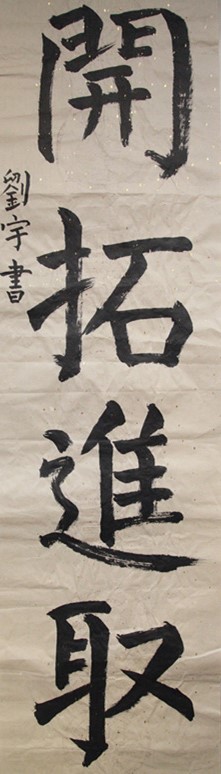 開拓進取
劉宇書